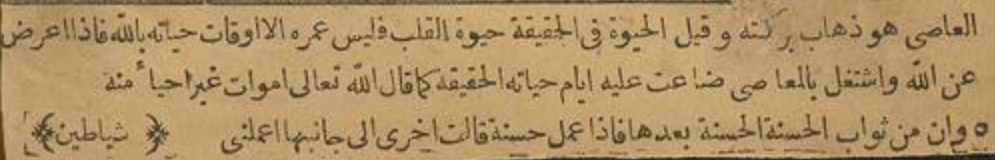 العاصى هو ذهاب بركته وقيل الحيوة فى الحقيقة حيوة القلب فليس عمره الا اوقات حياته بالله فاذا اعرض
عن الله واشتغل بالمعاصى ضاعت عليه ايام حياته الحقيقه كما قال الله تعالى اموات غير احياء منه
ه وان من ثواب الحسنة الحسنة بعدها فاذا عمل حسنة قالت اخرى الى جانبها اعملنى ﴿ شياطين ﴾